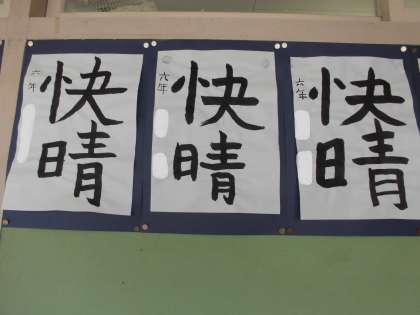 快晴
六年
快晴
六年
快晴
六年